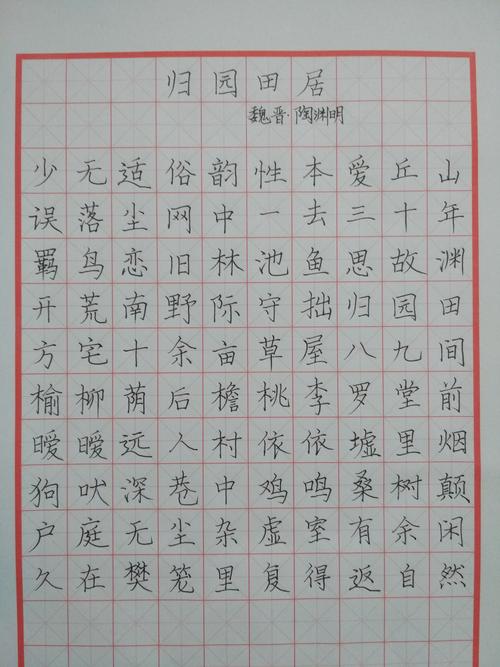 归园田居
魏晋·陶渊明
少无适俗韵性本爱丘山
误落尘网中一去三十年
羁鸟恋旧林池鱼思故渊
开荒南野际守拙归园田
方宅十余亩草屋八九间
榆柳荫后檐桃李罗堂前
暧暧远人村依依墟里烟
狗吠深巷中鸡鸣桑树颠
户庭无尘杂虚室有余闲
久在樊笼里复得返自然